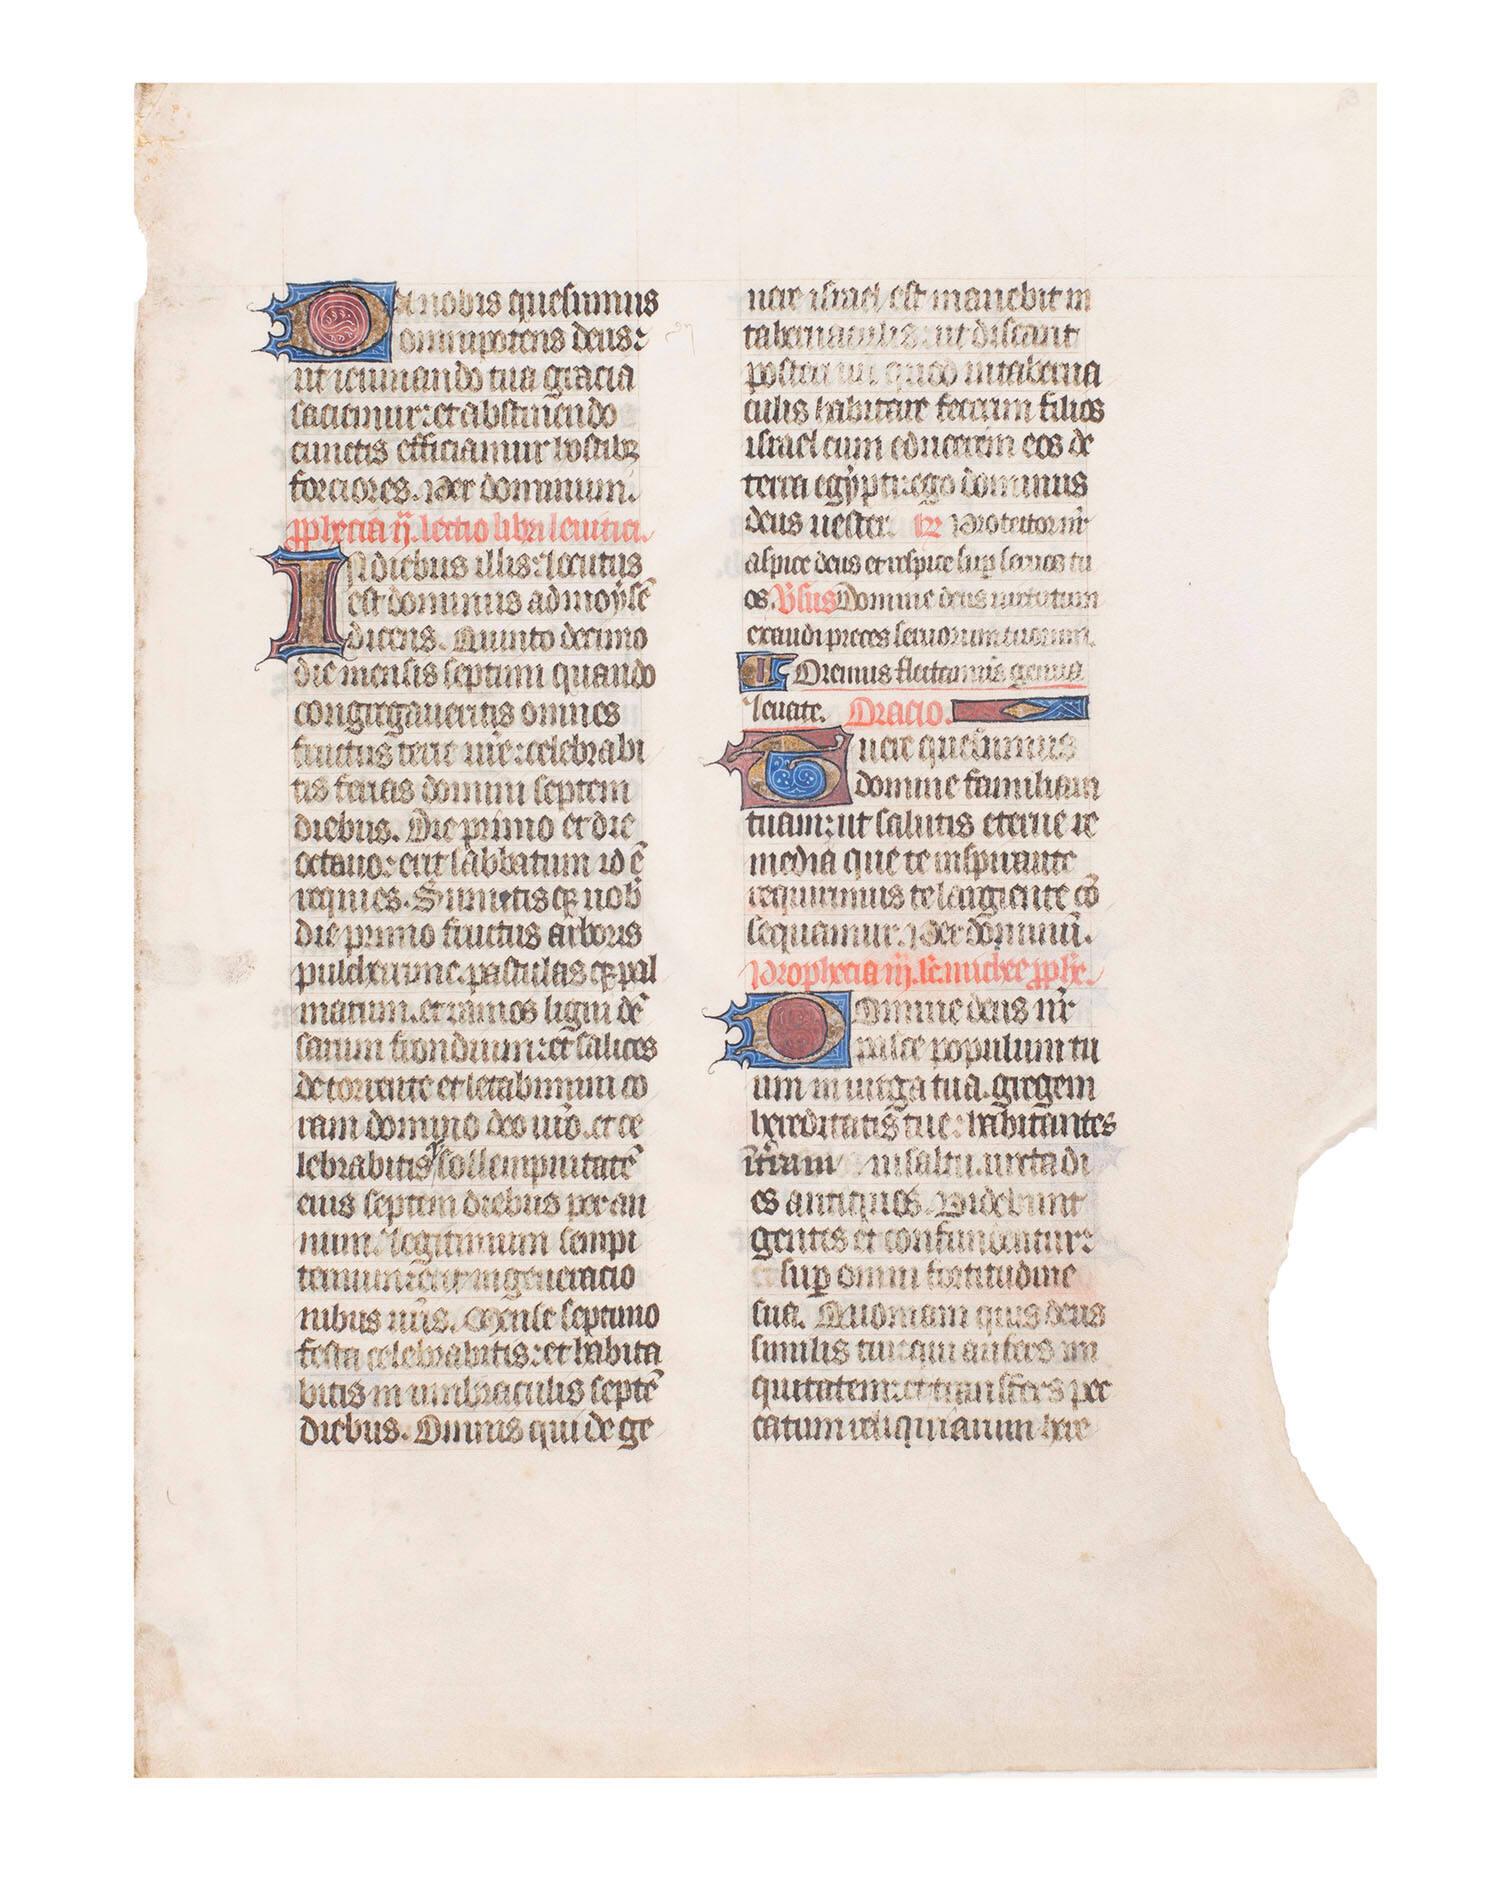 Da nobis quesumus
omnipotens deus:
ut ieiunando tua gracia
saciemur: et abstinendo
cunctis efficiamur hostibꝫ
forciores. Per dominum.
ꝓphecia ij. lectio libri leuitici.
IN diebus illis: locutus
est dominus ad moysē
dicens. Quinto decimo
die mensis septimi quando
congregaueritis omnes
fructus terre ur̄e: celebrabi
tis ferias domini septem
diebus. Die primo et die
octauo: erit sabbatum id ē
requies. Sumetisqꝫ uob̄
die primo fructus arboris
pulcherrime. spatulasqꝫ pal
marum. et ramos ligni dē
sarum frondium: et salices
de torrente et letabimini co
ram domino deo ur̄o. et ce
lebrabitis sollempnitatē
eius septem diebus per an
num. legitimum sempi
ternum: erit in generacio
nibus ur̄is. Mense septimo
festa celebrabitis: et habita
bitis in umbraculis septē
diebus. Omnis qui de ge
nere israel est manebit in
tabernaculis: ut discant
posteri uri quod in taberna
culis habitare fecerim filios
israel cum educerem eos de
terra egypti: ego dominus
deus uester. R Protector nr̄
aspice deus et respice sup̄ seruos tu
os. V̄sus Domine deus uirtutum
exaudi preces seruorum tuorum.
Oremus flectamus genua
leuate. Oracio.
Tuere quesumus
domine familiam
tuam: ut salutis eterne re
media que te inspirante
requirimus te largiente cō
sequamur. Per dominū.
Prophecia iij. sc. michee ꝓph̄e.
Domine deus nr̄
pasce populum tu
um in uirga tua. gregem
hereditatis tue: habitantes
in saltu. iuxta di
es antiquos. Videbunt
gentes et confundentur:
sup̄ omni fortitudine
sua. Quoniam quis deus
similis tui: qui aufers ini
quitatem: et transfers pec
catum reliquiarum here